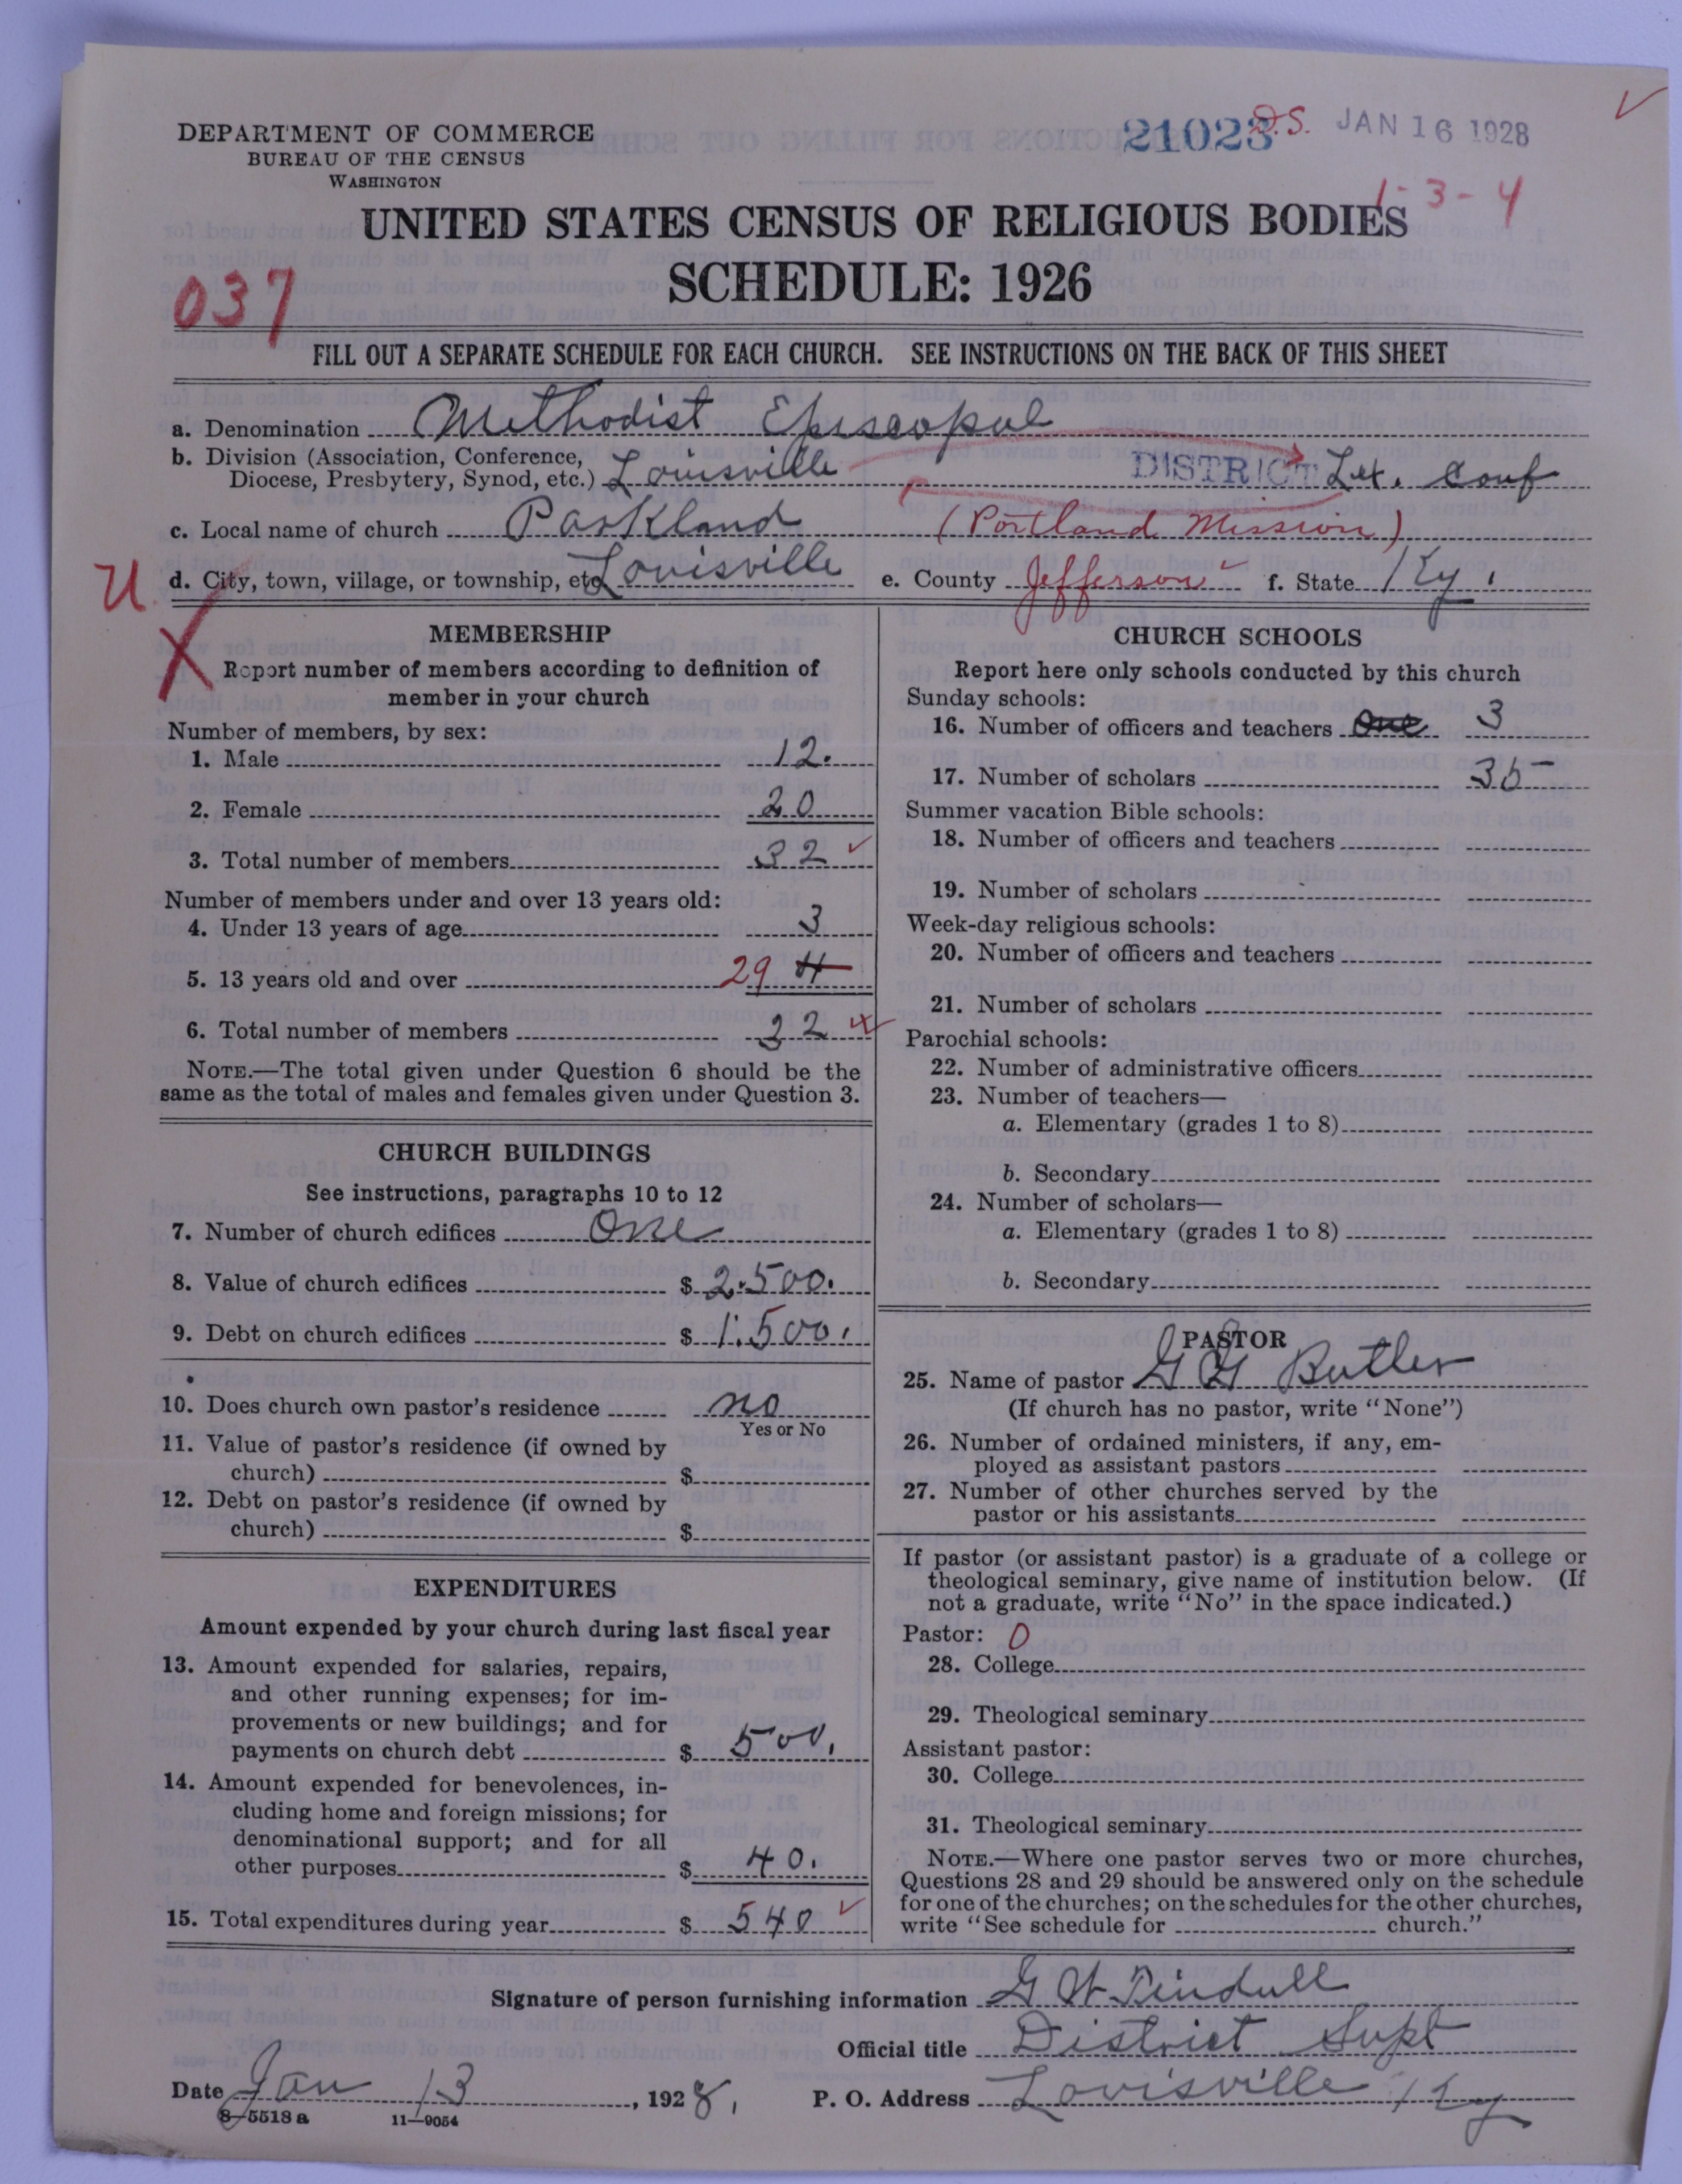 DEPARTMENT OF COMMERCE
BUREAU OF THE CENSUS
WASHINGTON
21023 D.S. JAN 16 1928
1-3-4
UNITED STATES CENSUS OF RELIGIOUS BODIES
SCHEDULE: 1926
037
FILL OUT A SEPARATE SCHEDULE FOR EACH CHURCH. SEE INSTRUCTIONS ON THE BACK OF THIS SHEET
a. Denomination Methodist Episcopal
b. Division (Association, Conference,
Diocese, Presbytery, Synod, etc.) Louisville DISTRICT Lex. Conf
c. Local name of church Parkland (Portland Mission)
U d. City, town, village, or township, etc Louisville e. County Jefferson f. State Ky.
X
MEMBERSHIP
Report number of members according to definition of
member in your church
Number of members, by sex:
1. Male 12.
2. Female 20
3. Total number of members 32
Number of members under and over 13 years old:
4. Under 13 years of age 3
5. 13 years old and over 29
6. Total number of members 32
NOTE.—The total given under Question 6 should be the
same as the total of males and females given under Question 3.
CHURCH BUILDINGS
See instructions, paragraphs 10 to 12
7. Number of church edifices One
8. Value of church edifices $ 2.500.
9. Debt on church edifices $ 1.500.
10. Does church own pastor's residence no
Yes or No
11. Value of pastor's residence (if owned by
church) $
12. Debt on pastor's residence (if owned by
church) $
EXPENDITURES
Amount expended by your church during last fiscal year
13. Amount expended for salaries, repairs,
and other running expenses; for im-
provements or new buildings; and for
payments on church debt $ 500.
14. Amount expended for benevolences, in-
cluding home and foreign missions; for
denominational support; and for all
other purposes $ 40.
15. Total expenditures during year $ 540
CHURCH SCHOOLS
Report here only schools conducted by this church
Sunday schools:
16. Number of officers and teachers One 3
17. Number of scholars 35
Summer vacation Bible schools:
18. Number of officers and teachers
19. Number of scholars
Week-day religious schools:
20. Number of officers and teachers
21. Number of scholars
Parochial schools:
22. Number of administrative officers
23. Number of teachers—
a. Elementary (grades 1 to 8)
b. Secondary
24. Number of scholars—
a. Elementary (grades 1 to 8)
b. Secondary
PASTOR
25. Name of pastor G G Butler
(If church has no pastor, write "None")
26. Number of ordained ministers, if any, em-
ployed as assistant pastors
27. Number of other churches served by the
pastor or his assistants
If pastor (or assistant pastor) is a graduate of a college or
theological seminary, give name of institution below. (If
not a graduate, write "No" in the space indicated.)
Pastor: 0
28. College
29. Theological seminary
Assistant pastor:
30. College
31. Theological seminary
NOTE.—Where one pastor serves two or more churches,
Questions 28 and 29 should be answered only on the schedule
for one of the churches; on the schedules for the other churches,
write "See schedule for church."
Signature of person furnishing information G W Tindull
Official title District Supt
Date Jan 13, 1928. P. O. Address Louisville Ky
8—5518a 11—9054